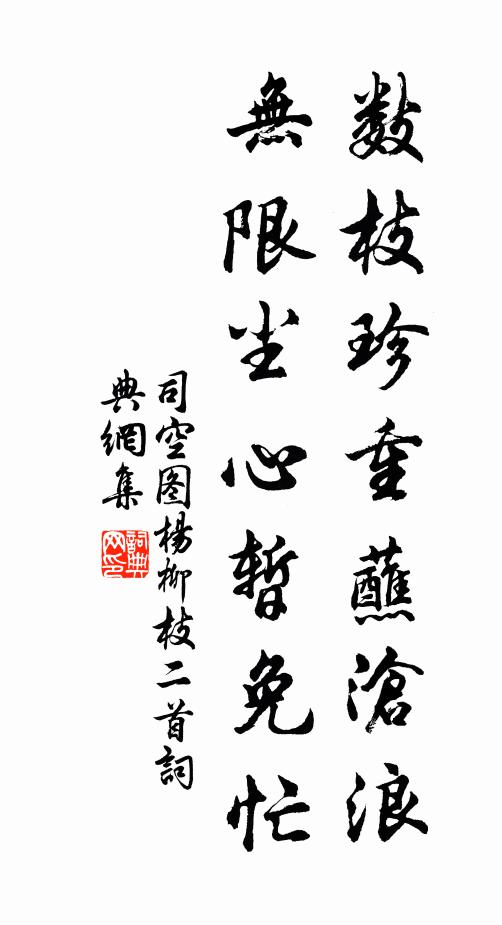 數枝珍重蘸滄浪
無限尘心暫免忙
司空图楊柳枝二首詞
典網集
詞典
网印